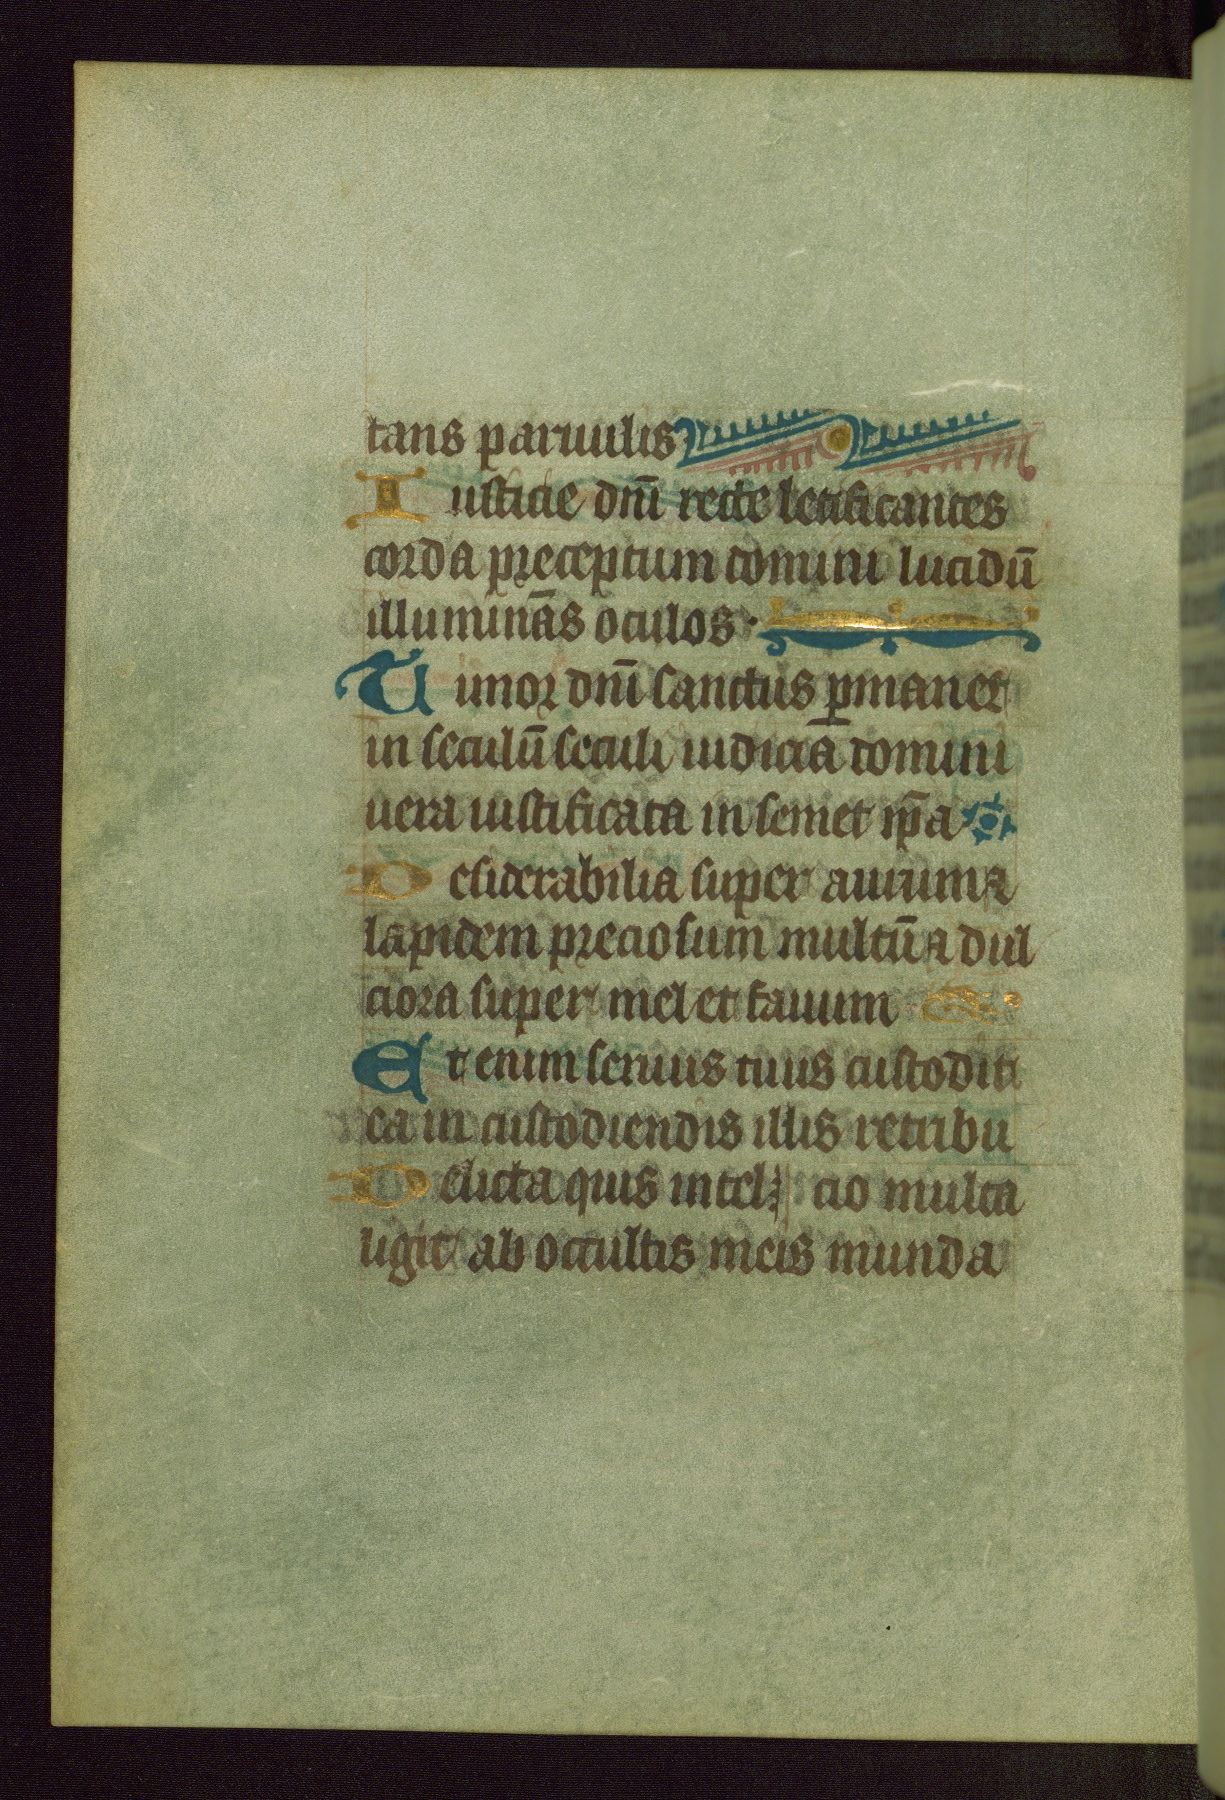 tans paruulis
Iusticie dnī recte letificantes
corda preceptum domini lucidū
illuminās oculos·
Timor dnī sanctus ꝑmanet
in seculū seculi iudicia domini
uera iustificata in semet ip̄a
Desiderabilia super aurum ⁊
lapidem preciosum multū ⁊ dul
ciora super mel et fauum
Et enim seruus tuus custodit
ea in custodiendis illis retribu
Delicta quis intel cio multa
ligit ab occultis meis munda